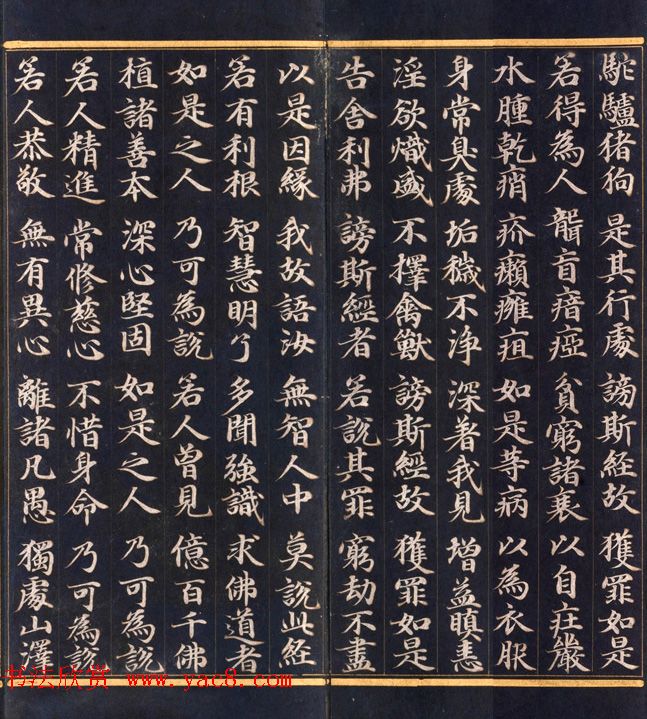 駝驢猪狗 是其行處 謗斯經故 獲罪如是
若得為人 聾盲瘖瘂 貧窮諸衰 以自莊嚴
水腫乾痟 疥癩癰疽 如是等病 以為衣服
身常臭處 垢穢不淨 深著我見 增益瞋恚
淫欲熾盛 不擇禽獸 謗斯經故 獲罪如是
告舍利弗 謗斯經者 若說其罪 窮劫不盡
以是因緣 我故語汝 無智人中 莫說此經
若有利根 智慧明了 多聞強識 求佛道者
如是之人 乃可為說 若人曾見 億百千佛
植諸善本 深心堅固 如是之人 乃可為說
若人精進 常修慈心 不惜身命 乃可為說
若人恭敬 無有異心 離諸凡愚 獨處山澤
书法欣赏 www.yac8.com